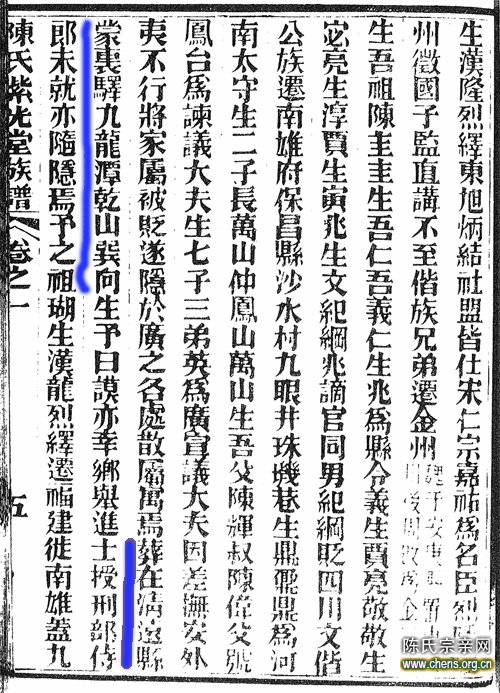 生漢隆烈繹東旭炳結社盟皆仕宋仁宗嘉祐爲名臣烈
州徵國子監直講不至偕族兄弟遷金州
生吾祖陳圭圭生吾仁吾義仁生兆爲縣令義生賈亮敬敬生
宓亮生淳賈生寅兆生文紀綱兆謫官同男紀綱貶四川文偕
公族遷南雄府保昌縣沙水村九眼井珠璣巷生鼎鼐鼎爲河
南太守生二子長萬山仲鳳山萬山生吾父陳輝叔陳偉父號
鳳台爲諫議大夫生七子三弟英爲廣宣議大夫因差撫安外
夷不行將家屬被貶遂隱於廣之各處散屬寓焉葬在清遠縣
蒙裏驛九龍潭乾山巽向生予曰謨亦幸鄉舉進士授刑部侍
郎未就亦隨隱焉予之祖瑚生漢龍烈繹遷福建徙南雄蓋九
陳氏紫光堂族譜 卷之一 五
陈氏宗亲网
www.chens.org.cn